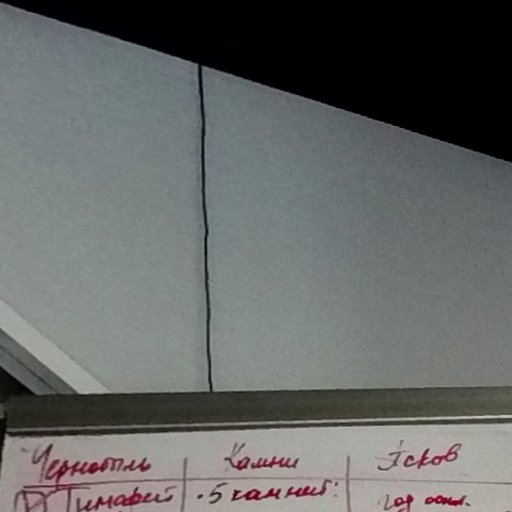 Чернобыль Камни Псков
Тимофей • 5 камней: год осн.